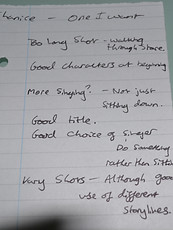 hanice - One I want
Too Long Shot - walking
through store.
Good characters at beginning
More singing? - Not just
sitting down.
Good title.
Good choice of singer
Do something
rather than sitting
Vary Shots - Although good
use of different
storylines.